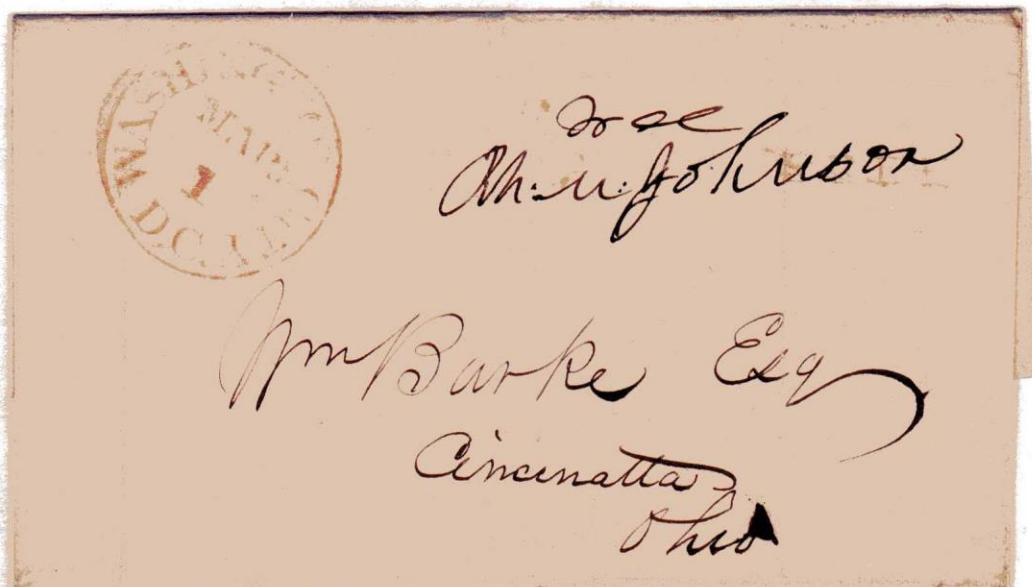 WASHINGTON CITY D.C.
MAR
1
Free
Ch: N: Johnson
Wm Burke Esq
Cincinatta
Ohio